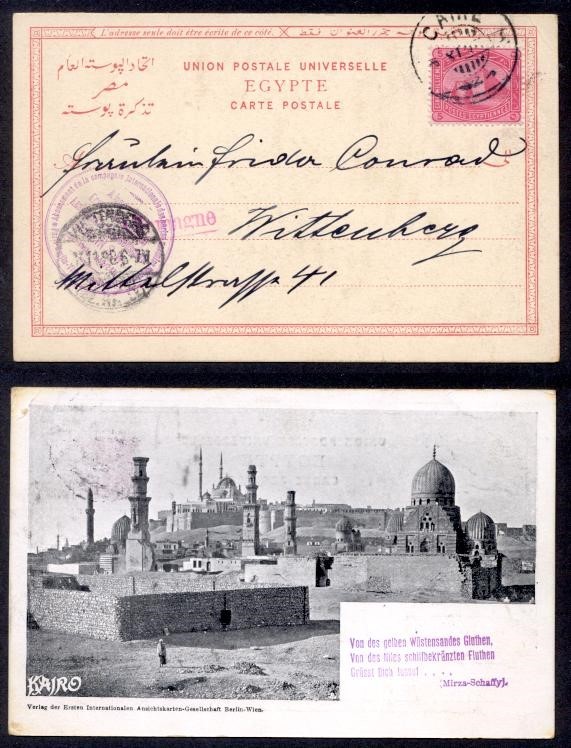 L'adresse seule doit être écrite de ce côté.
CAIRE
اتحاد البوستة العام
مصر
تذكرة بوستة
UNION POSTALE UNIVERSELLE
EGYPTE
CARTE POSTALE
POSTES EGYPTIENNES
Fräulein Frida Conrad
Wittenberg
Mittelstrasse 41
KAIRO
Verlag der Ersten Internationalen Ansichtskarten-Gesellschaft Berlin-Wien.
Von des gelben Wüstensandes Gluthen,
Von des Niles schilfbekränzten Fluthen
Grüsst Dich tausd . . . .
(Mirza-Schaffy).